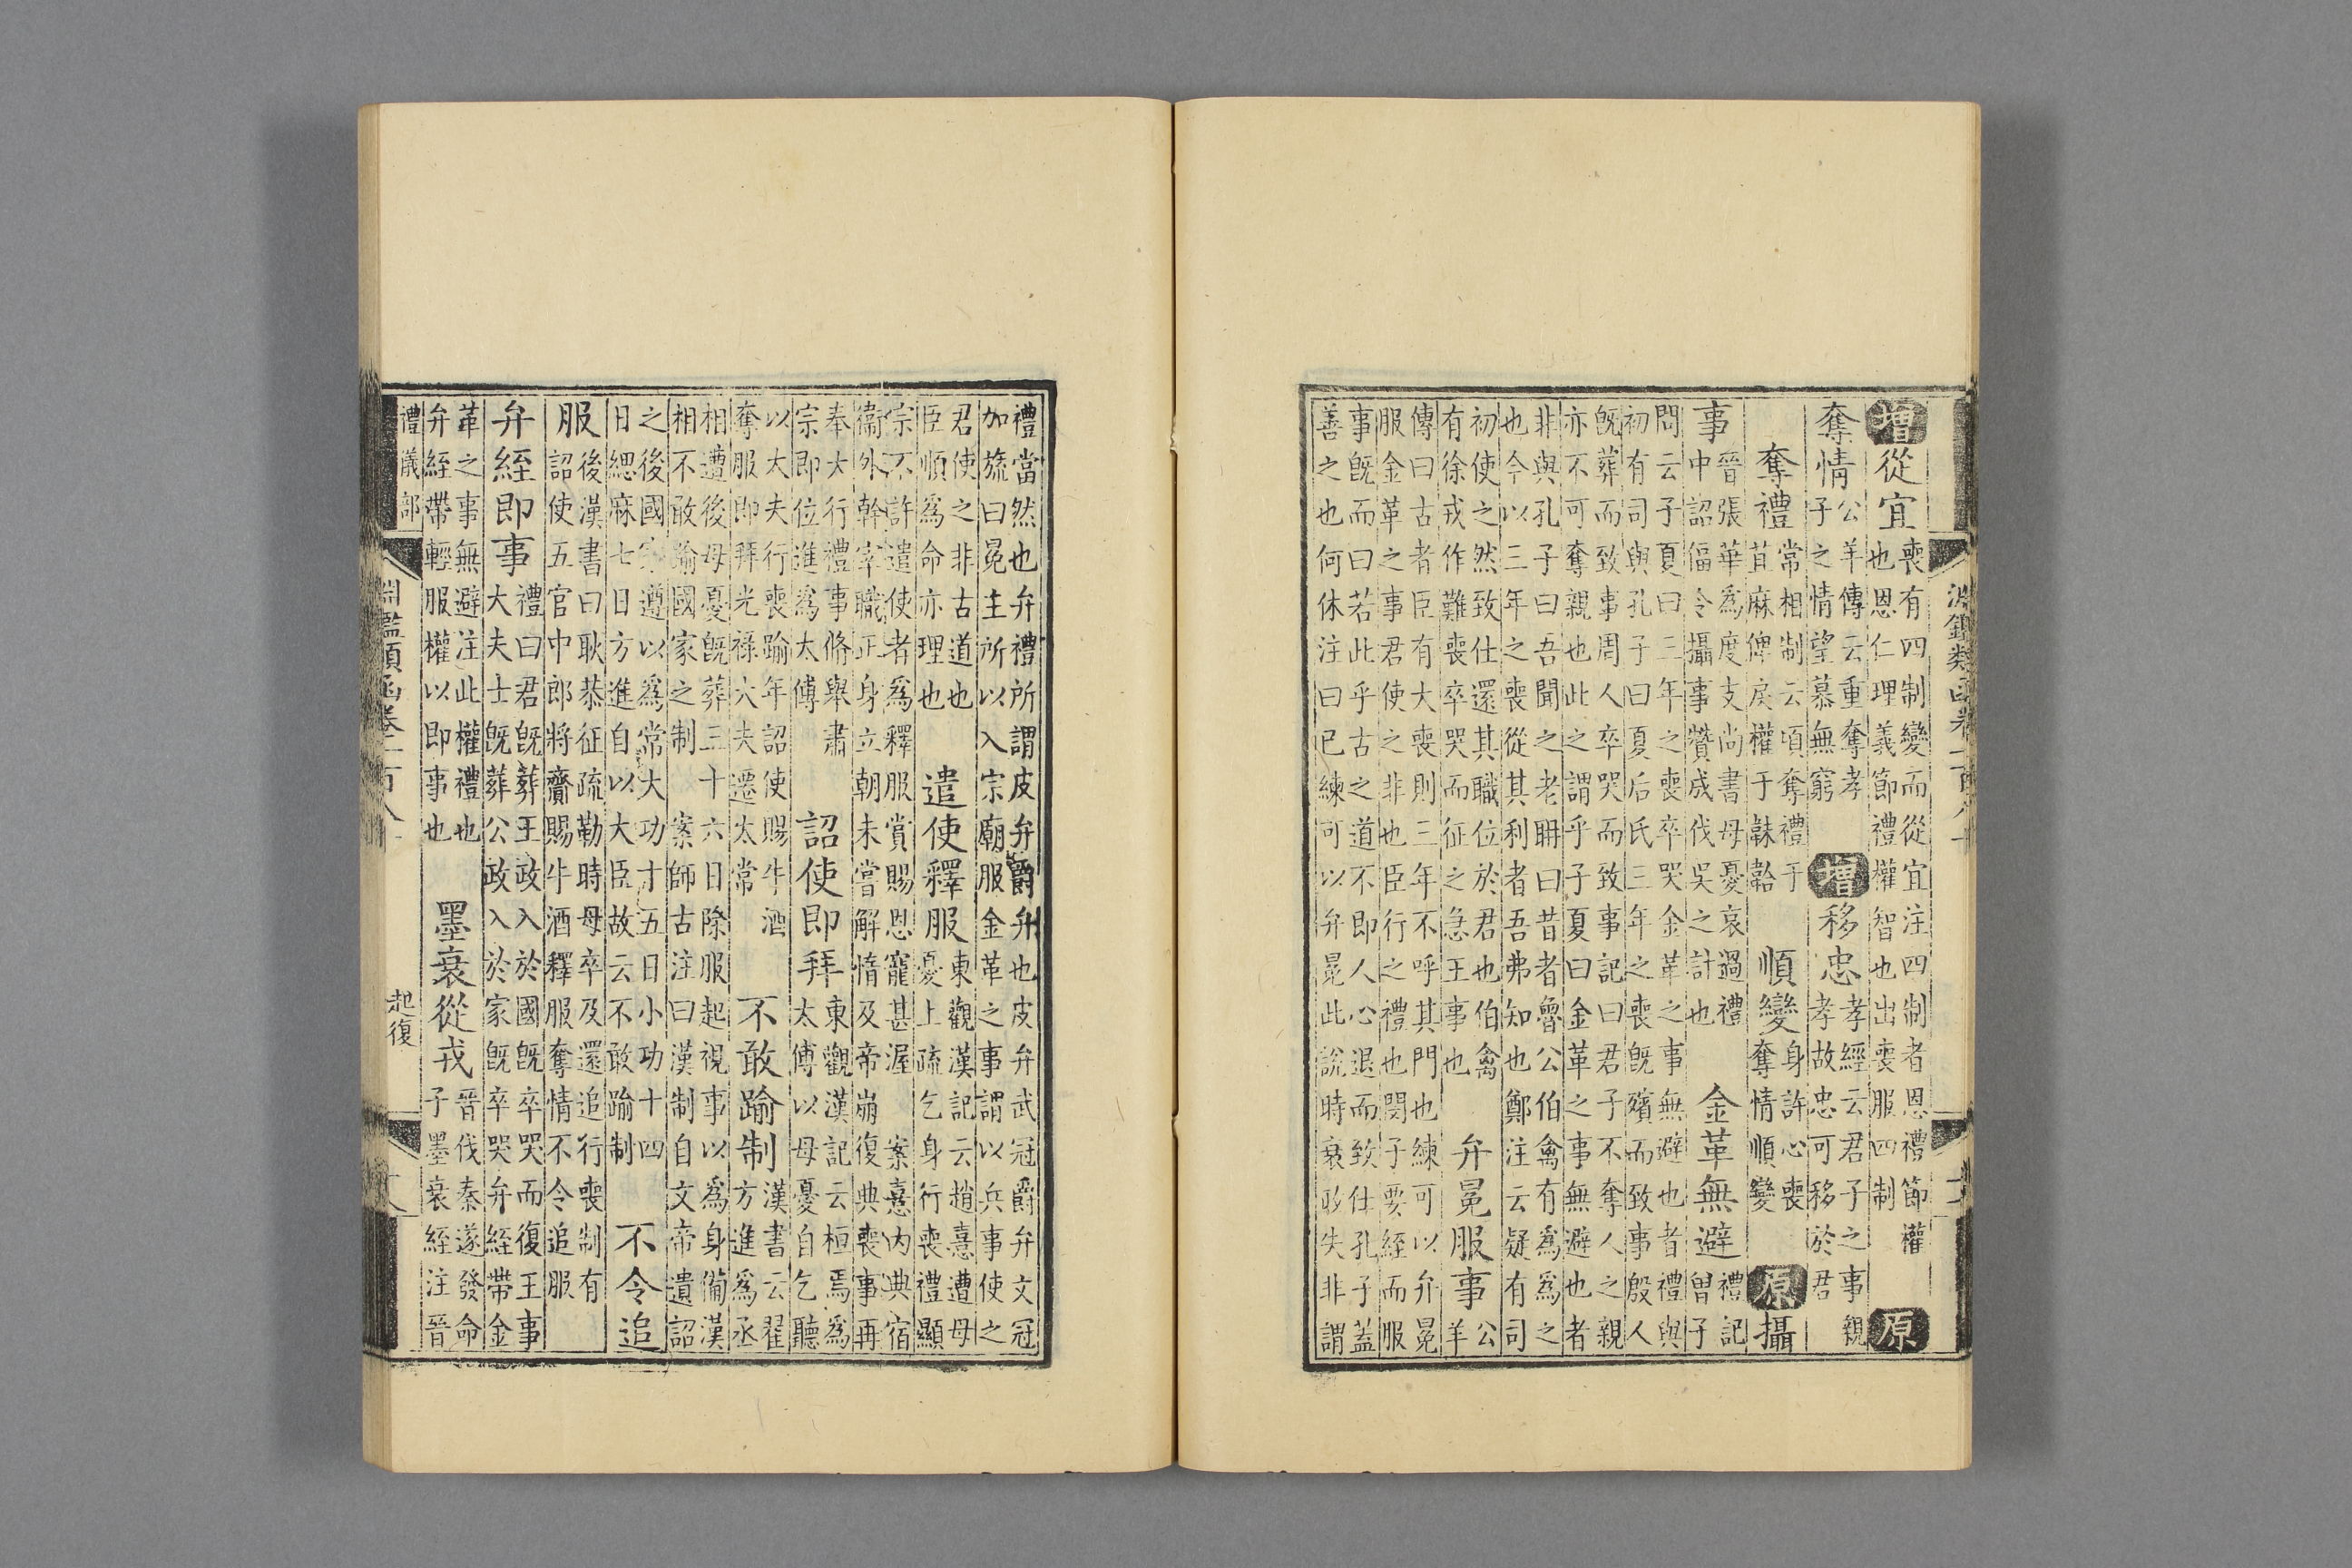 淵鑑類函卷一百八十
增從宜
喪有四制變而從宜注四制者恩禮節權
也恩仁理義節禮權智也出喪服四制
原
奪情
公羊傳云重奪孝
子之情望慕無窮
增移忠
孝經云君子之事親
孝故忠可移於君
奪禮
常相制云頃奪禮于
苴麻俾戾權于韎韐
順變
身許心喪
奪情順變
原攝
事
晉張華爲度支尚書母憂哀過禮
中詔偪令攝事贊成伐吳之計也
金革無避
禮記
曾子
問云子夏曰三年之喪卒哭金革之事無避也者禮與
初有司與孔子曰夏后氏三年之喪既殯而致事殷人
既葬而致事周人卒哭而致事記曰君子不奪人之親
亦不可奪親也此之謂乎子夏曰金革之事無避也者
非與孔子曰吾聞之老聃曰昔者魯公伯禽有爲爲之
也今以三年之喪從其利者吾弗知也鄭注云疑有司
初使之然致仕還其職位於君也伯禽
有徐戎作難喪卒哭而征之急王事也
弁冕服事
公
羊
傳曰古者臣有大喪則三年不呼其門也練可以弁冕
服金革之事君使之非也臣行之禮也閔子要絰而服
事既而曰若此乎古之道不即人心退而致仕孔子蓋
善之也何休注曰已練可以弁冕此說時衰政失非謂
禮當然也弁禮所謂皮弁爵弁也皮弁武冠爵弁文冠
加旒曰冕主所以入宗廟服金革之事謂以兵事使之
君使之非古道也
臣順爲命亦理也
遣使釋服
東觀漢記云趙憙遭母
憂上疏乞身行喪禮顯
宗不許遣使者爲釋服賞賜恩寵甚渥 案憙内典宿
衞外幹宰職正身立朝未嘗解惰及帝崩復典喪事再
奉大行禮事脩舉肅
宗即位進爲太傅
詔使即拜
東觀漢記云桓焉爲
太傅以母憂自乞聽
以大夫行喪踰年詔使賜牛酒
奪服即拜光祿大夫遷太常
不敢踰制
漢書云翟
方進爲丞
相遭後母憂既葬三十六日除服起視事以爲身備漢
相不敢踰國家之制 案師古注曰漢制自文帝遺詔
之後國家遵以爲常大功十五日小功十四
日緦麻七日方進自以大臣故云不敢踰制
不令追
服
後漢書曰耿恭征疏勒時母卒及還追行喪制有
詔使五官中郎將齎賜牛酒釋服奪情不令追服
弁絰即事
禮曰君既葬王政入於國既卒哭而復王事
大夫士既葬公政入於家既卒哭弁絰帶金
革之事無避注此權禮也
弁絰帶輕服權以即事也
墨衰從戎
晉伐秦遂發命
子墨衰絰注晉
禮儀部
淵鑑類函卷一百八
起復